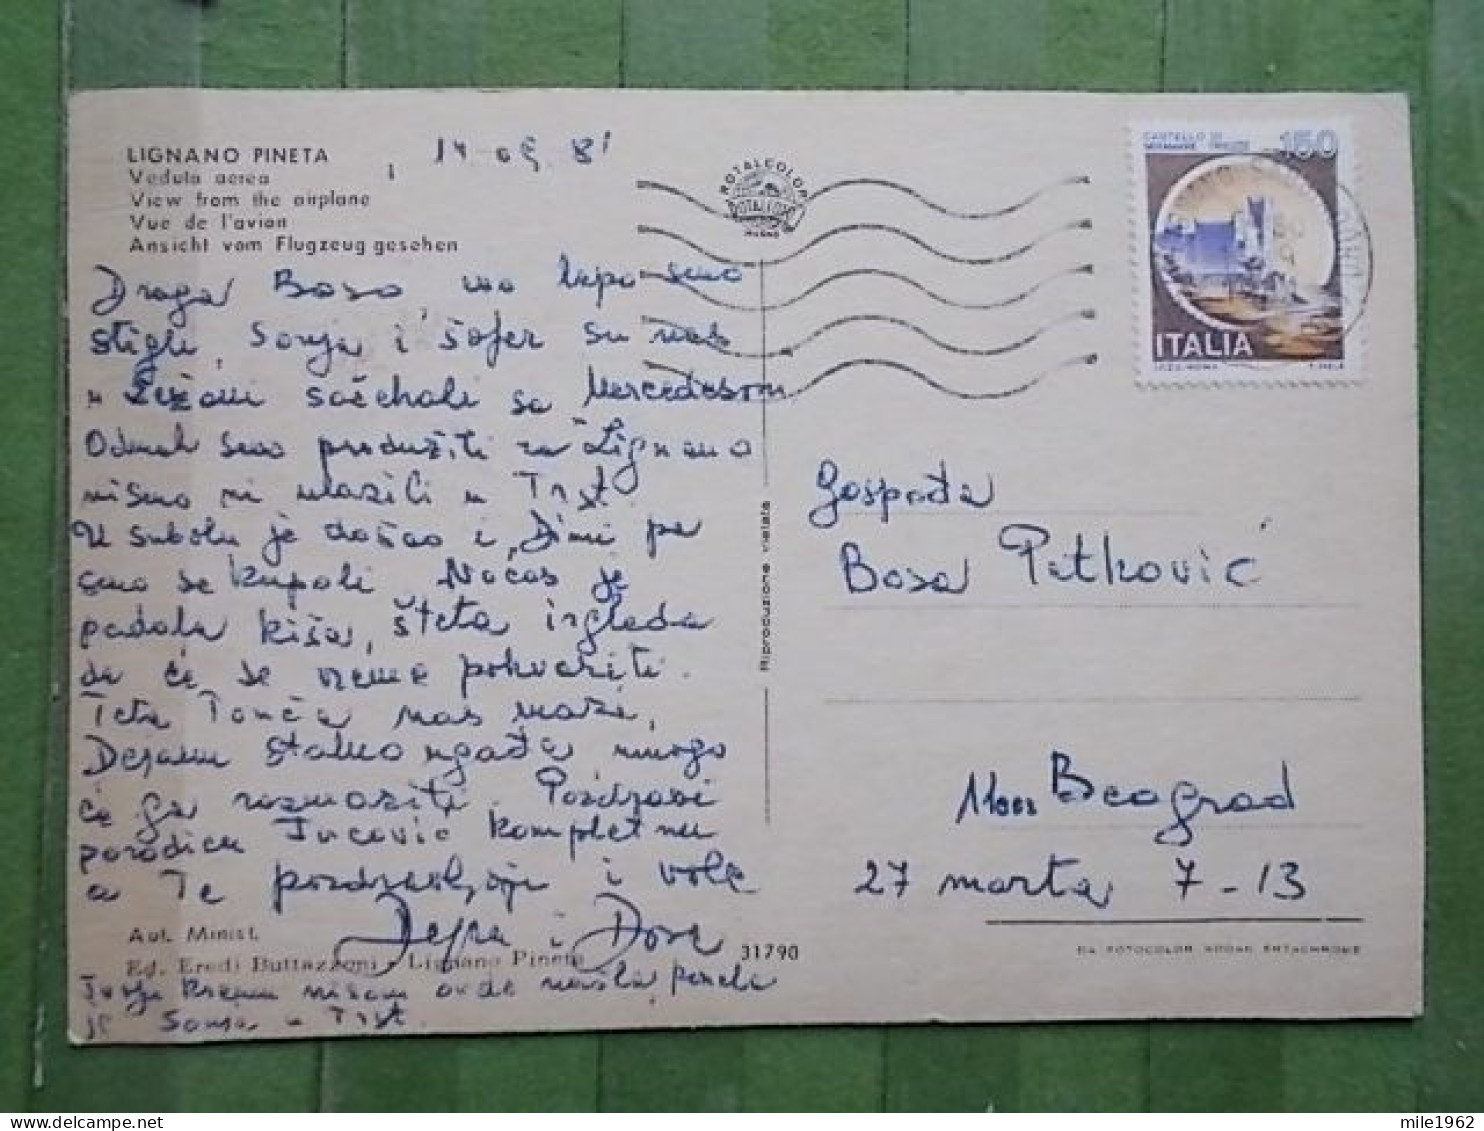 LIGNANO PINETA , 14 09 81
Veduta aerea
View from the airplane
Vue de l'avion
Ansicht vom Flugzeug gesehen
ROTALCOLOR
ROTALFOTO
MILANO
CASTELLO DI
150
ITALIA
Draga Bosa, lepo smo
stigli, Sonja i šofer su nas
u Sežani sačekali sa Mercedesom
Odmah smo produžili za Lignano
nismo ni ulazili u Trst
U subotu je došao i Dimi pa
smo se kupali. Noćas je
padala kiša, šteta izgleda
da će se vreme pokvariti.
Teta Tonča nas mazi,
Dejanu stalno ugađa mnogo
će ga razmaziti. Pozdravi
porodicu kompletnu
a Te pozdravljaju i vole
Dejan i Dora
Aut. Minist.
Ed. Eredi Buttazzoni - Lignano Pineta
31790
kremu nisam ovde našla, ponela
je Sonja u Trst.
Riproduzione vietata
Gospođa
Bosa Petković
11000 Beograd
27 marta 7-13
DA FOTOCOLOR KODAK EKTACHROME
mile1962